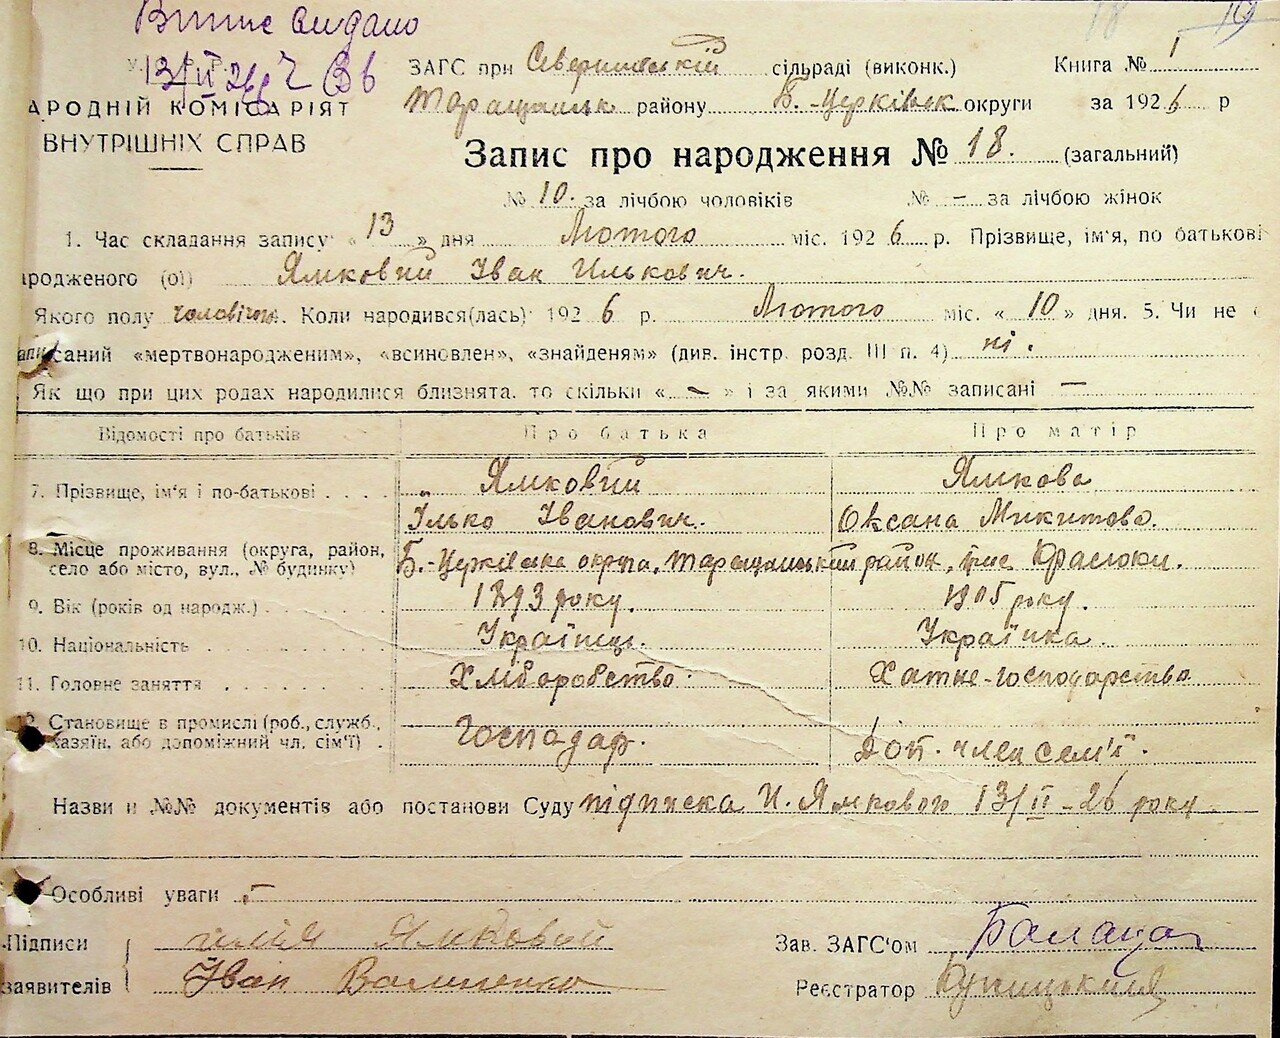 18 19
Випис видано
13/II 26 р.
У. С. Р. Р.
АРОДНІЙ КОМІСАРІЯТ
ВНУТРІШНІХ СПРАВ
ЗАГС при Северинівській сільраді (виконк.) Книга № 1
Таращанськ району Б.-Церківськ округи за 1926 р
Запис про народження № 18. (загальний)
№ 10. за лічбою чоловіків № – за лічбою жінок
1. Час складання запису «13» дня Лютого міс. 1926 р. Прізвище, ім'я, по батькові
ародженого (ої) Ямковий Іван Илькович.
Якого полу чоловічого. Коли народився(лась) 1926 р. Лютого міс. «10» дня. 5. Чи не
записаний «мертвонародженим», «всиновлен», «знайденям» (див. інстр. розд. III п. 4) ні.
Як що при цих родах народилися близнята, то скільки «–» і за якими №№ записані –
Відомості про батьків Про батька Про матір
7. Прізвище, ім'я і по-батькові . . . . Ямковий Ямкова
Ілько Іванович. Оксана Микитова.
8. Місце проживання (округа, район,
село або місто, вул., № будинку) Б.-Церківська округа, Таращанський район, Красюки.
9. Вік (років од народж.) . . . . 1893 року. 1905 року.
10. Національність . . . . Українець. Українка.
11. Головне заняття . . . . . . Хліборобство. Хатнє-господарство
12. Становище в промислі (роб., служб.,
хазяїн. або допоміжний чл. сім'ї) . Господар. Доп. член сем'ї.
Назви и №№ документів або постанови Суду підписка И. Ямкового 13/II – 26 року
Особливі уваги –
Підписи Ямковой Зав. ЗАГС'ом
заявителів Іван Волиненко Реєстратор